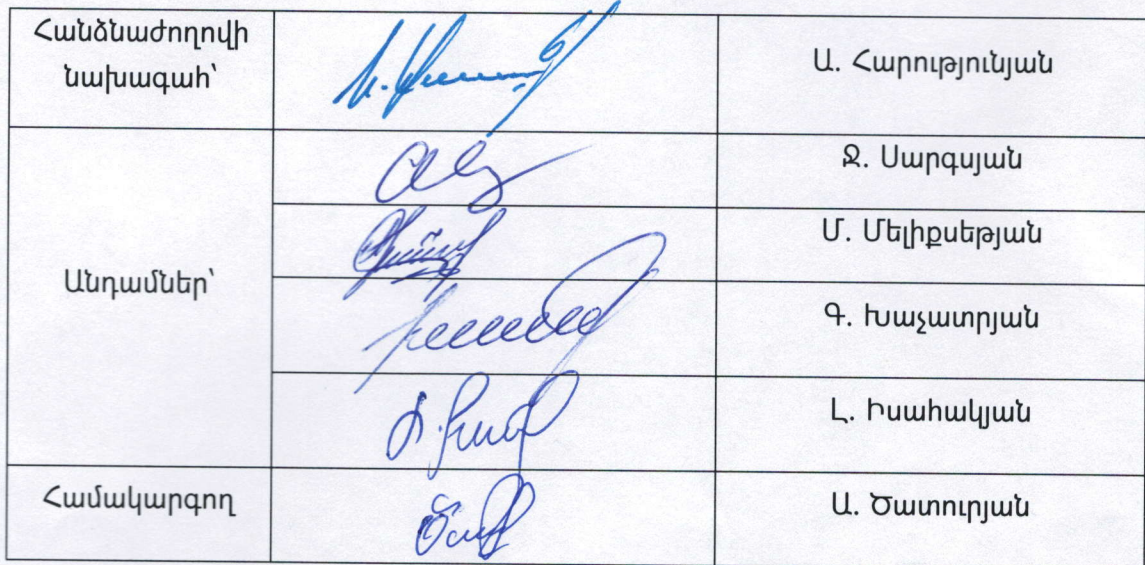 Հանձնաժողովի
նախագահ՝
Ա. Հարությունյան
Ջ. Սարգսյան
Մ. Մելիքսեթյան
Անդամներ՝
Գ. Խաչատրյան
Լ. Իսահակյան
Համակարգող
Ա. Ծատուրյան